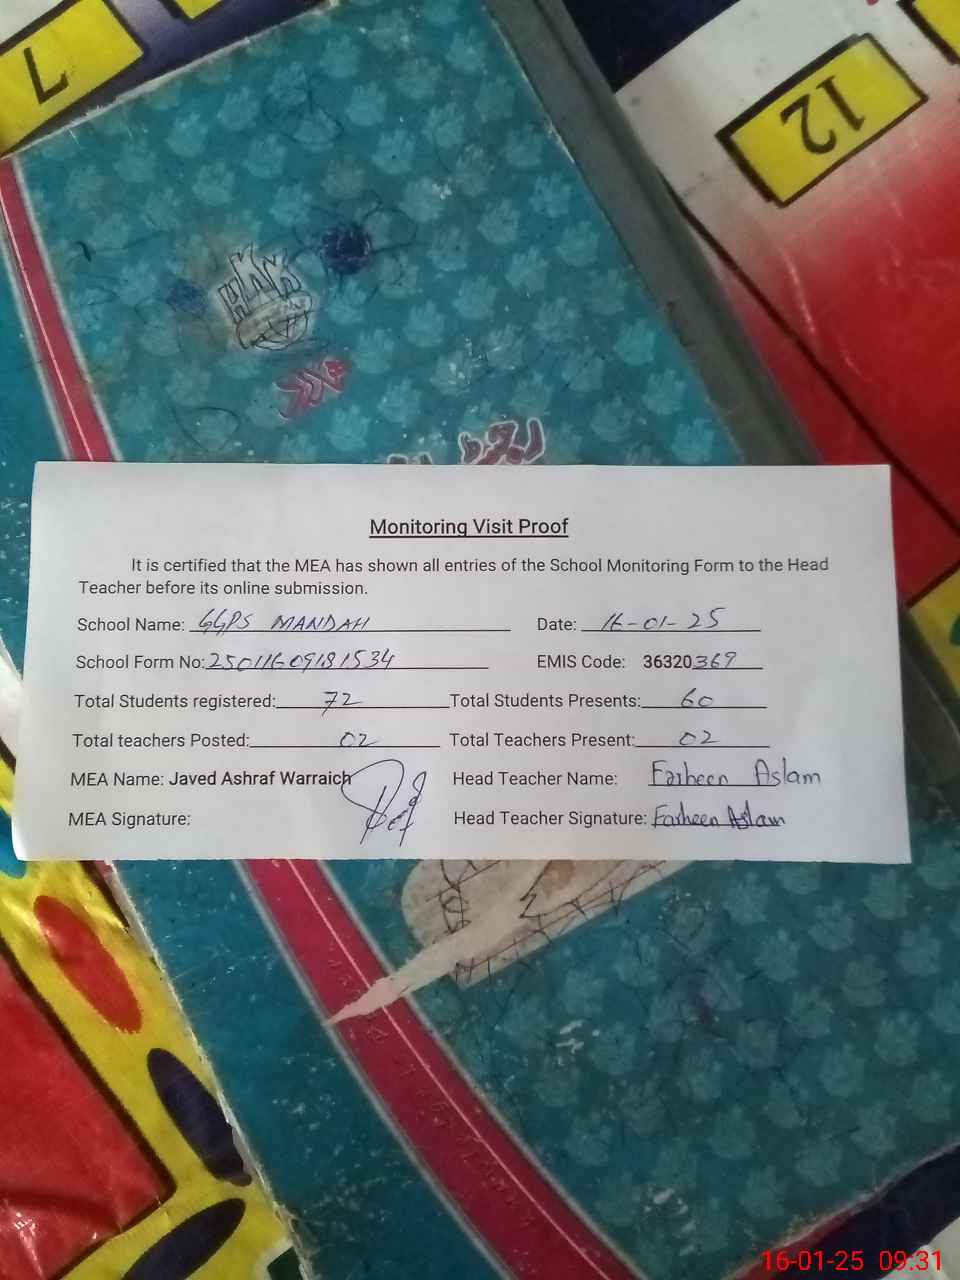 7
12
HAK
رجسٹر
Monitoring Visit Proof
It is certified that the MEA has shown all entries of the School Monitoring Form to the Head
Teacher before its online submission.
School Name: GGPS MANDAH Date: 16-01-25
School Form No: 25011609181534 EMIS Code: 36320369
Total Students registered: 72 Total Students Presents: 60
Total teachers Posted: 02 Total Teachers Present: 02
MEA Name: Javed Ashraf Warraich Head Teacher Name: Farheen Aslam
MEA Signature: Head Teacher Signature: Farheen Aslam
16-01-25 09:31